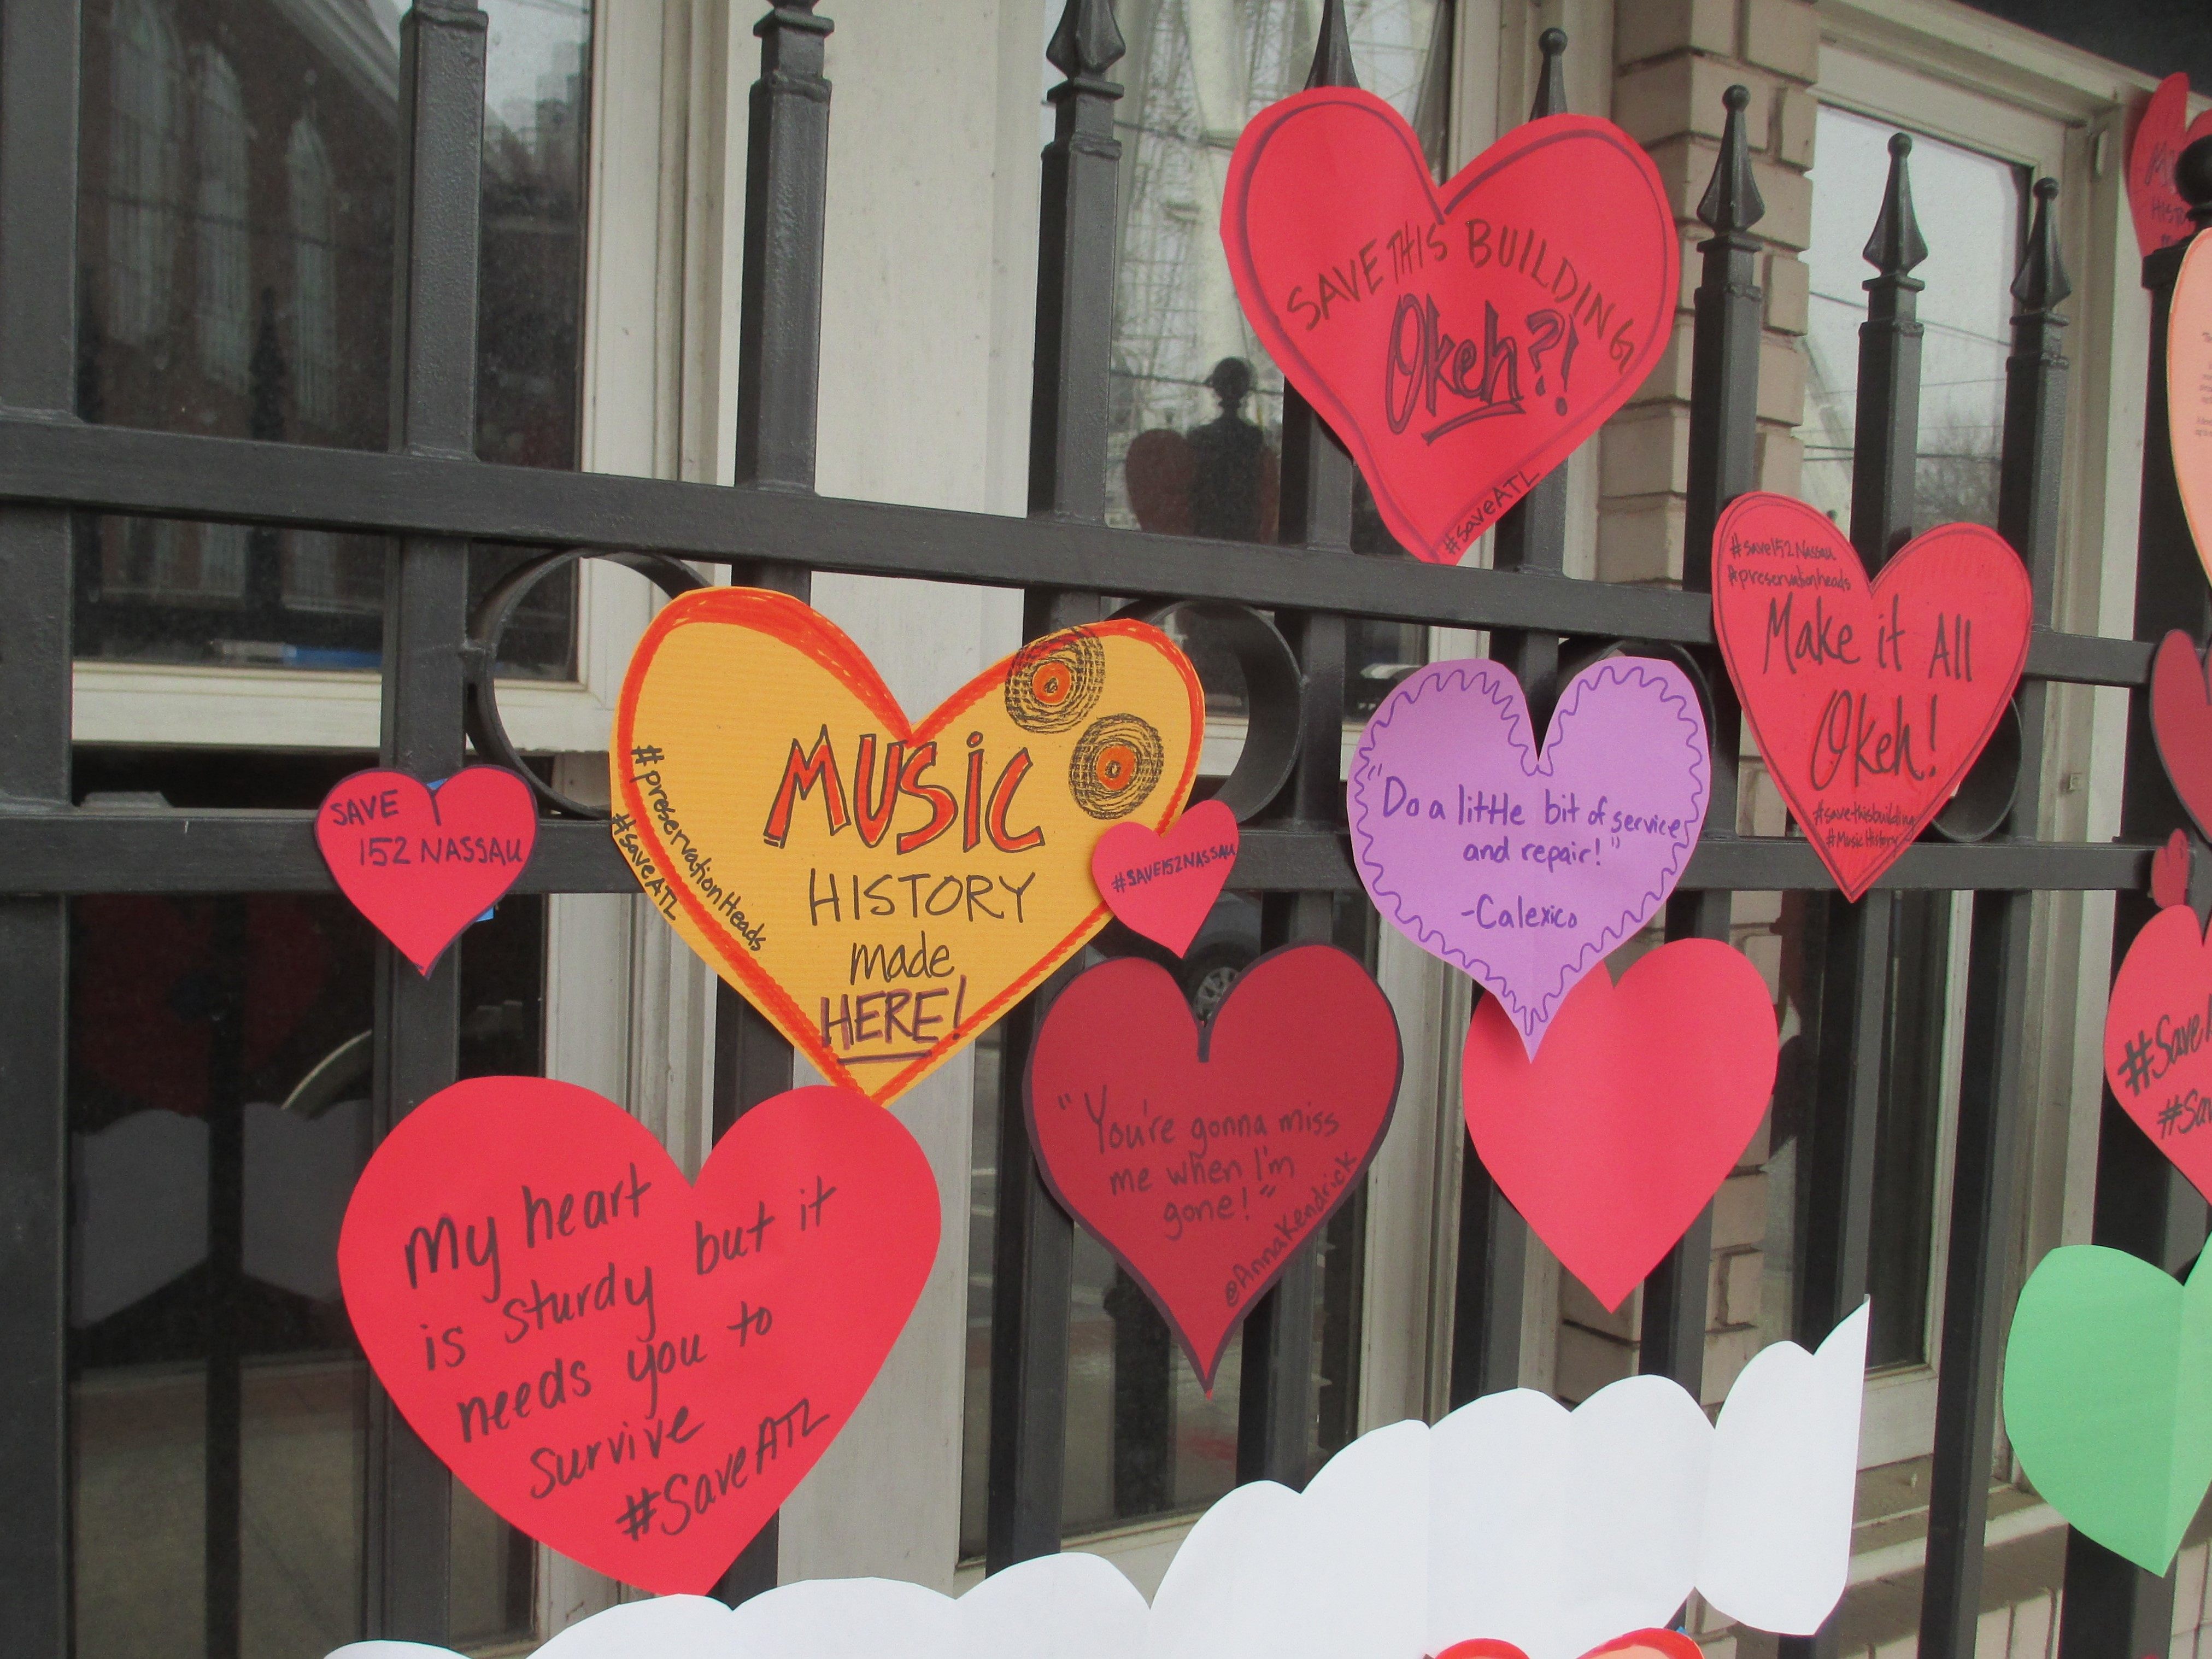 SAVE THIS BUILDING
Okeh?!
#saveATL
#save152Nassau
#preservationheads
Make it All
Okeh!
#savethisbuilding
#MusicHistory
MUSIC
HISTORY
made
HERE!
#preservationHeads
#saveATL
SAVE
152 NASSAU
#SAVE152NASSAU
"Do a little bit of service
and repair!"
-Calexico
"You're gonna miss
me when I'm
gone!"
@AnnaKendrick
My heart
is sturdy but it
needs you to
survive
#SaveATL
#Save
#Sav